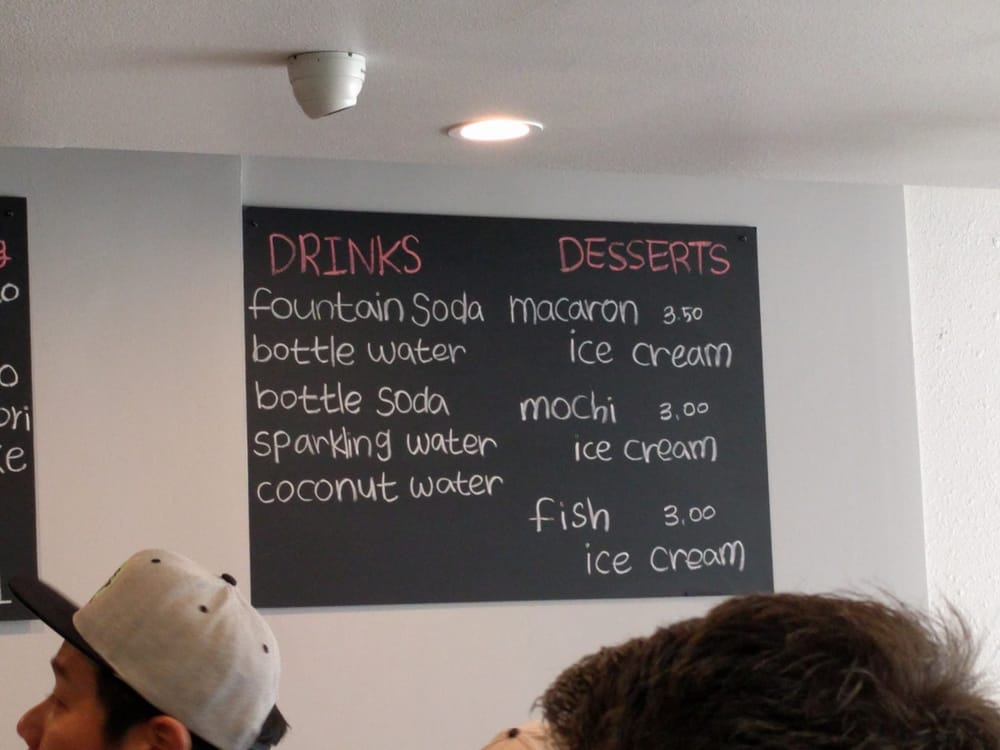 DRINKS
fountain soda
bottle water
bottle soda
sparkling water
coconut water
DESSERTS
macaron 3.50
ice cream
mochi 3.00
ice cream
fish 3.00
ice cream